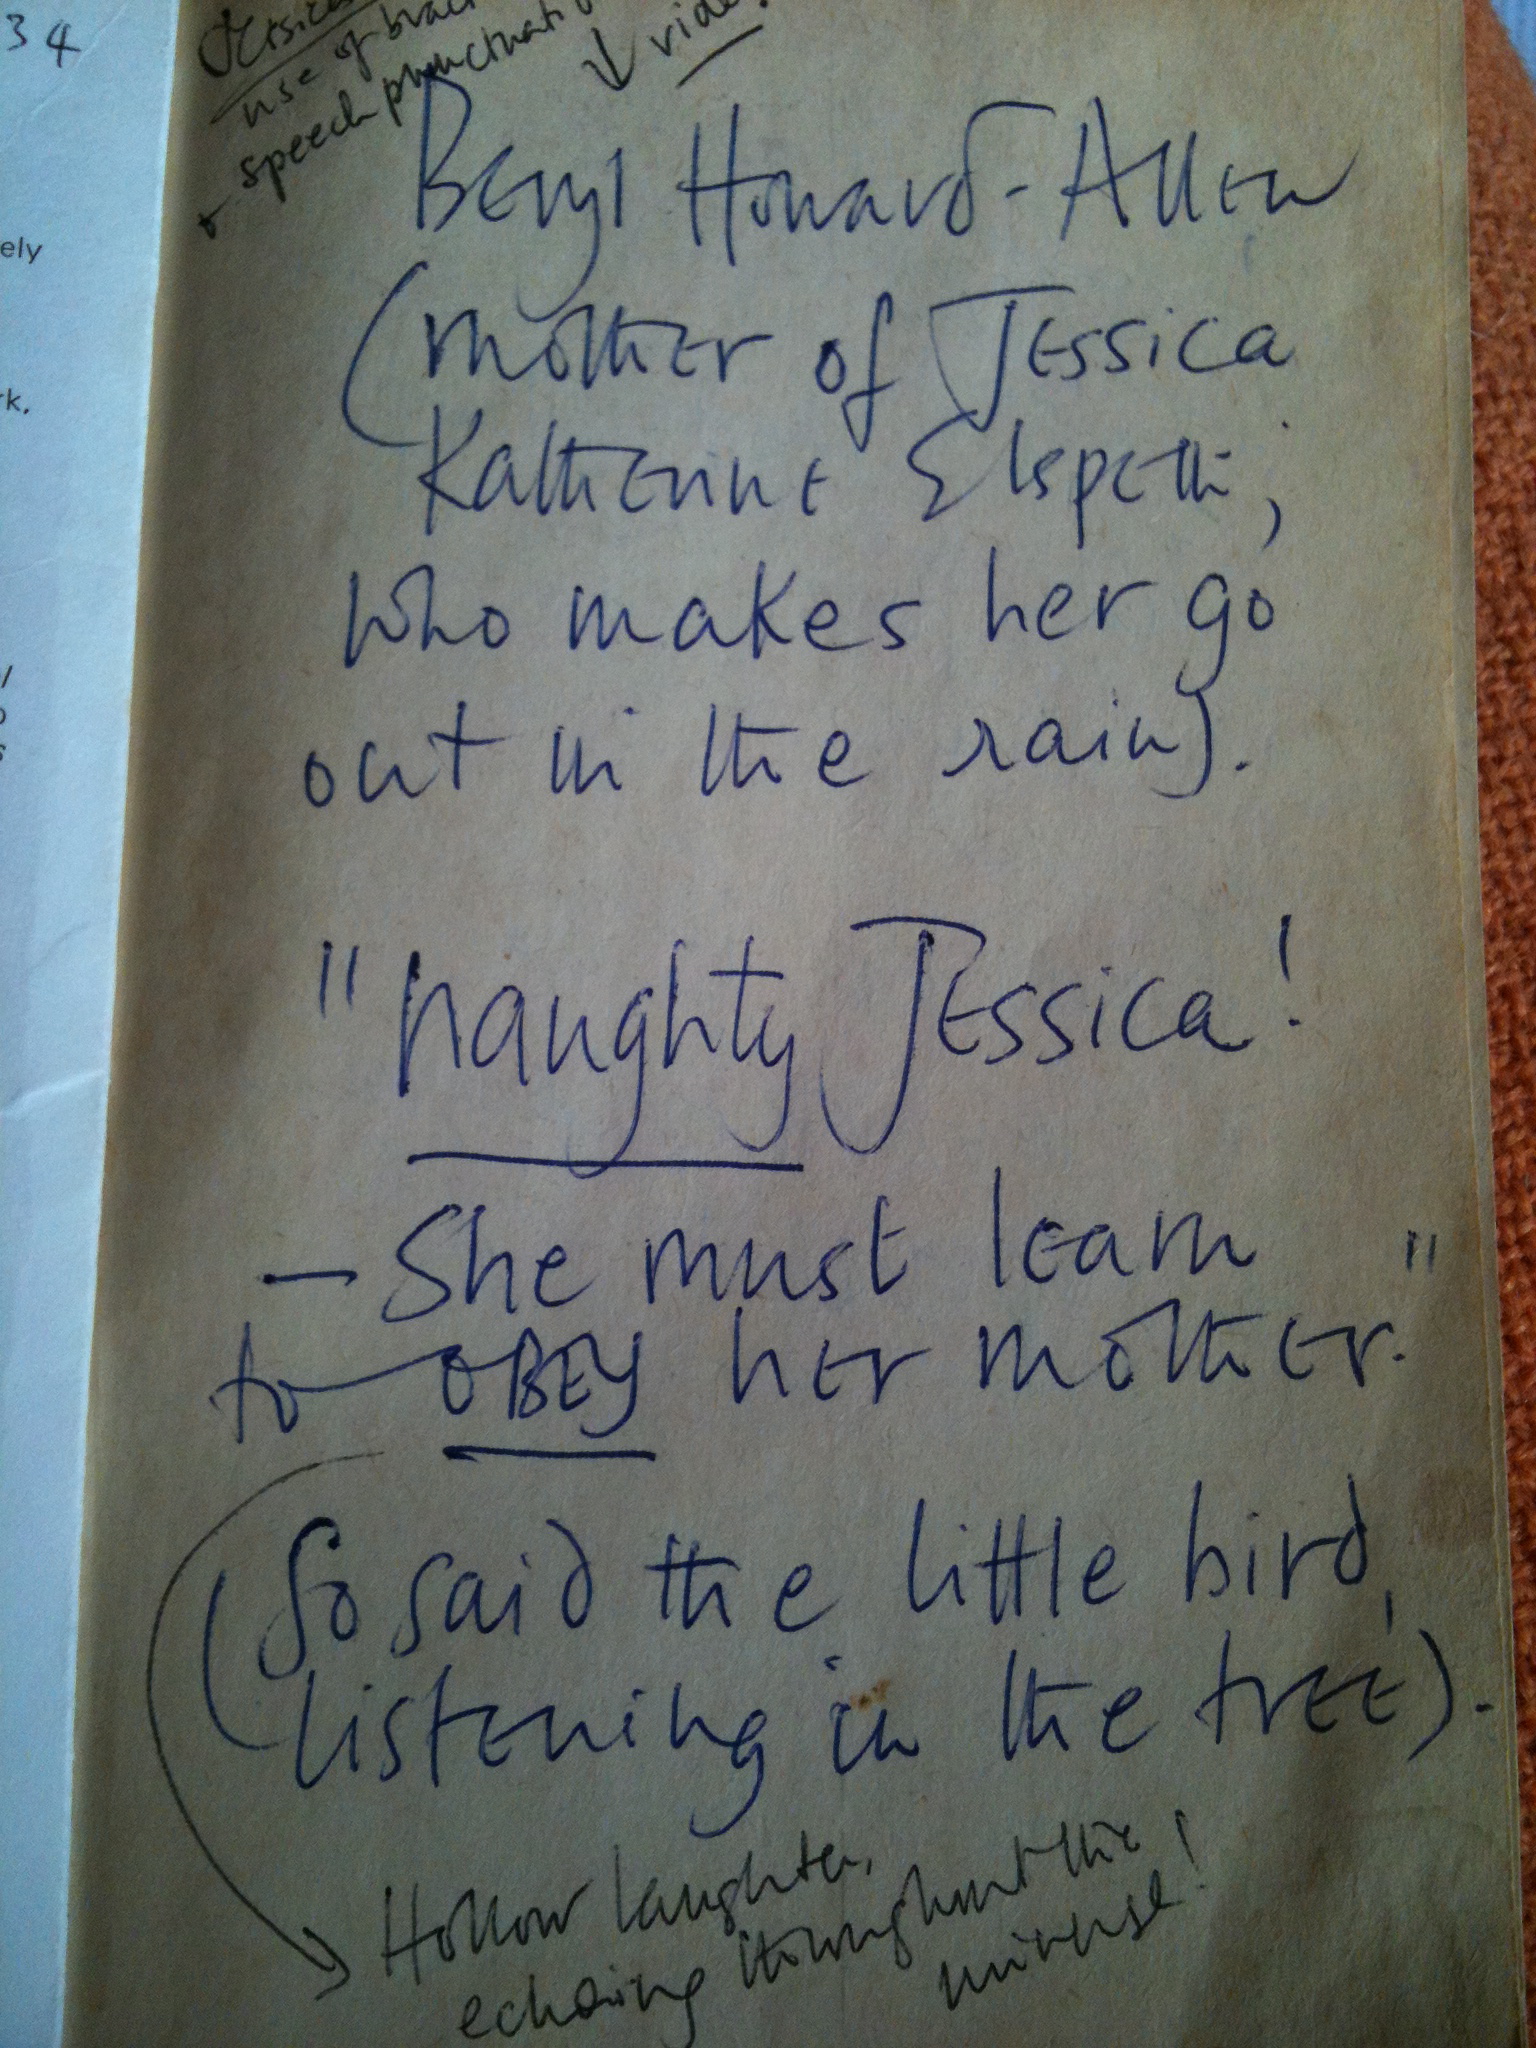 34
ely
rk.
use of
& speech punctuati
↓ vide!
Beryl Howard-Allen
(mother of Jessica
Katherine Elspeth,
who makes her go
out in the rain).
"naughty Jessica!
- She must learn
to OBEY her mother."
(So said the little bird,
listening in the tree).
Hollow laughter,
echoing throughout the
universe!